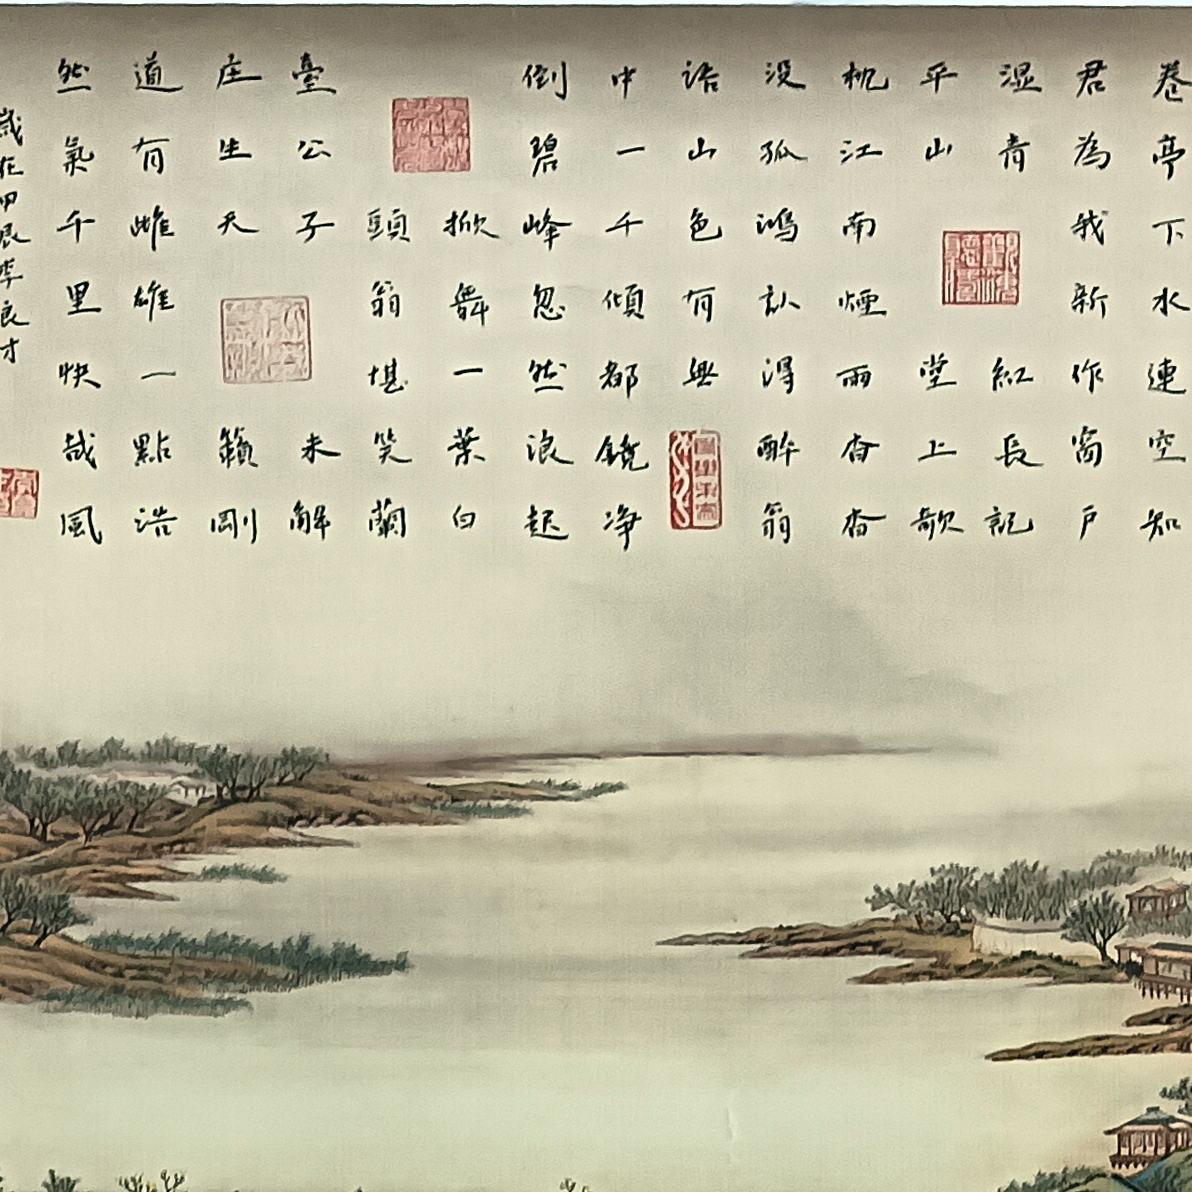 卷亭下水連空知
君為我新作窗戶
湿青紅長記
平山堂上欹
枕江南煙雨杳杳
没孤鴻認得醉翁
語山色有無
中一千傾都鏡净
倒碧峰忽然浪起
掀舞一葉白
頭翁堪笑蘭
臺公子未解
庄生天籟剛
道有雌雄一點浩
然氣千里快哉風
歲在甲辰李良才